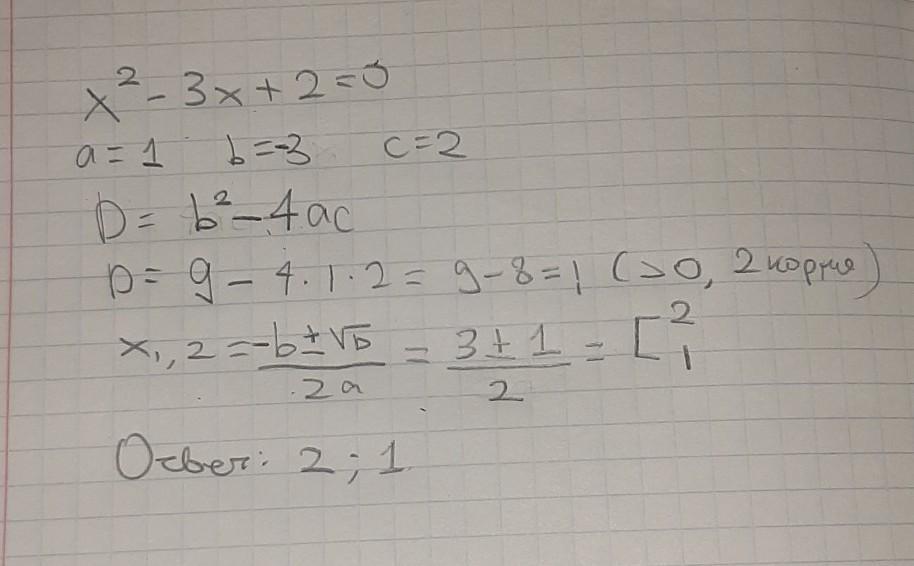 x² - 3x + 2 = 0
a = 1 b = -3 c = 2
D = b² - 4ac
D = 9 - 4 · 1 · 2 = 9 - 8 = 1 (>0, 2 корня)
x₁,2 = -b ± √D / 2a = 3 ± 1 / 2 = [ 2 1
Ответ: 2 ; 1